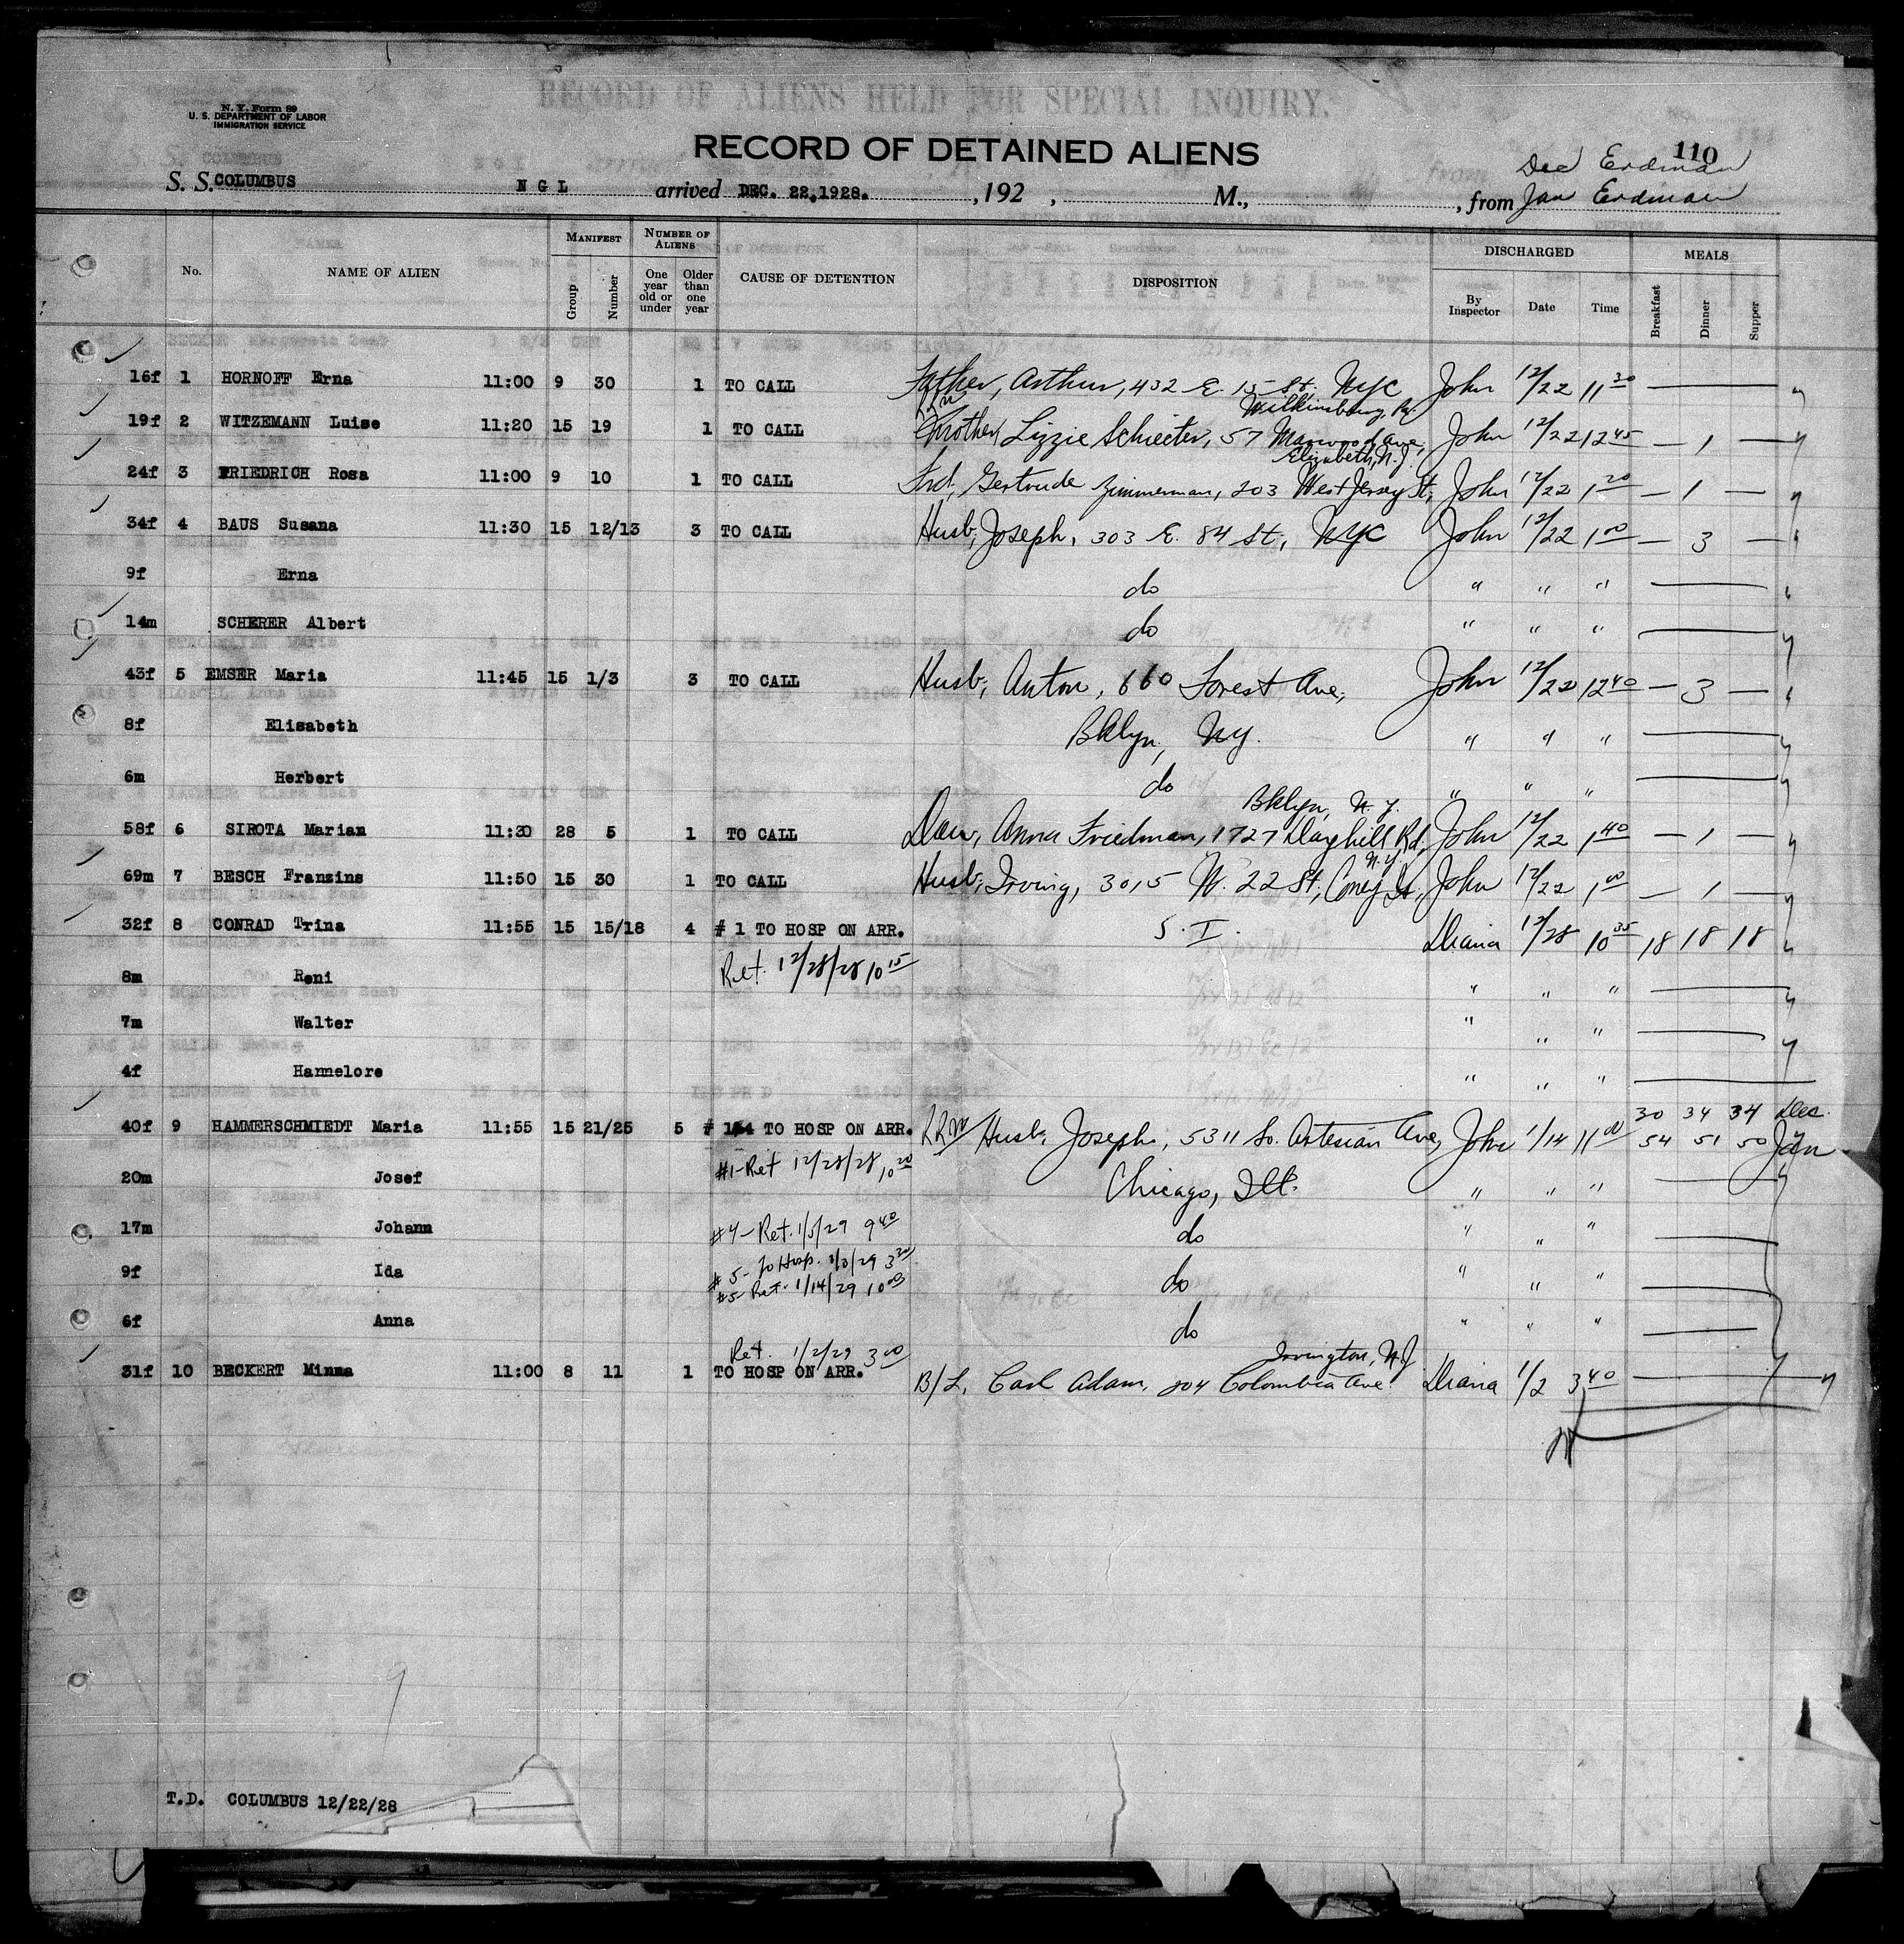 N. Y. Form 89
U. S. DEPARTMENT OF LABOR
IMMIGRATION SERVICE
RECORD OF ALIENS HELD FOR SPECIAL INQUIRY.
RECORD OF DETAINED ALIENS
110
Dec Erdman
S. S. COLUMBUS N G L arrived DEC. 22,1928. ,192 , M., , from Jan Erdman
No. NAME OF ALIEN MANIFEST Group Number NUMBER OF ALIENS One year old or under Older than one year CAUSE OF DETENTION DISPOSITION DISCHARGED By Inspector Date Time MEALS Breakfast Dinner Supper
16f 1 HORNOFF Erna 11:00 9 30 1 TO CALL Father, Arthur, 432 E. 15 St. NYC John 12/22 11 30
Wilkinsburg, Pa.
19f 2 WITZEMANN Luise 11:20 15 19 1 TO CALL Mother, Lizzie Schiecter, 57 Marwood Ave, John 12/22 12 45 — 1 —
Elizabeth, N.J.
24f 3 FRIEDRICH Rosa 11:00 9 10 1 TO CALL Frd, Gertrude Zimmerman, 203 West Jersey St, John 12/22 1 20 — 1 —
34f 4 BAUS Susana 11:30 15 12/13 3 TO CALL Husb, Joseph, 303 E. 84 St, NYC John 12/22 1 00 — 3 —
9f Erna do " " "
14m SCHERER Albert do " " "
43f 5 EMSER Maria 11:45 15 1/3 3 TO CALL Husb, Anton, 660 Forest Ave, John 12/22 12 40 — 3 —
8f Elisabeth Bklyn, NY. " " "
6m Herbert do " " "
Bklyn, N.Y.
58f 6 SIROTA Marian 11:30 28 5 1 TO CALL Dau, Anna Friedman, 1727 Dayhill Rd, John 12/22 1 40 — 1 —
N.Y.
69m 7 BESCH Franzins 11:50 15 30 1 TO CALL Husb, Irving, 3015 W. 22 St, Coney Is, John 12/22 1 00 — 1 —
32f 8 CONRAD Trina 11:55 15 15/18 4 # 1 TO HOSP ON ARR. S.I. Diana 12/28 10 35 18 18 18
Ret. 12/28/28 10 15
8m Reni " " "
7m Walter " " "
4f Hannelore " " "
30 34 34 Dec.
40f 9 HAMMERSCHMIEDT Maria 11:55 15 21/25 5 # 1&4 TO HOSP ON ARR. RRW Husb, Joseph, 5311 So. Artesian Ave, John 1/14 11 00 54 51 50 Jan
#1-Ret 12/28/28 10 20
20m Josef Chicago, Ill. " " "
17m Johann #4-Ret. 1/5/29 9 40 do " " "
#5-To Hosp. 1/3/29 3 30
9f Ida #5-Ret. 1/14/29 10 00 do " " "
6f Anna do " " "
Ret. 1/2/29 3 00 Irvington, N.J
31f 10 BECKERT Minna 11:00 8 11 1 TO HOSP ON ARR. B/L, Carl Adam, 204 Colombia Ave. Diana 1/2 3 40
9
T.D. COLUMBUS 12/22/28